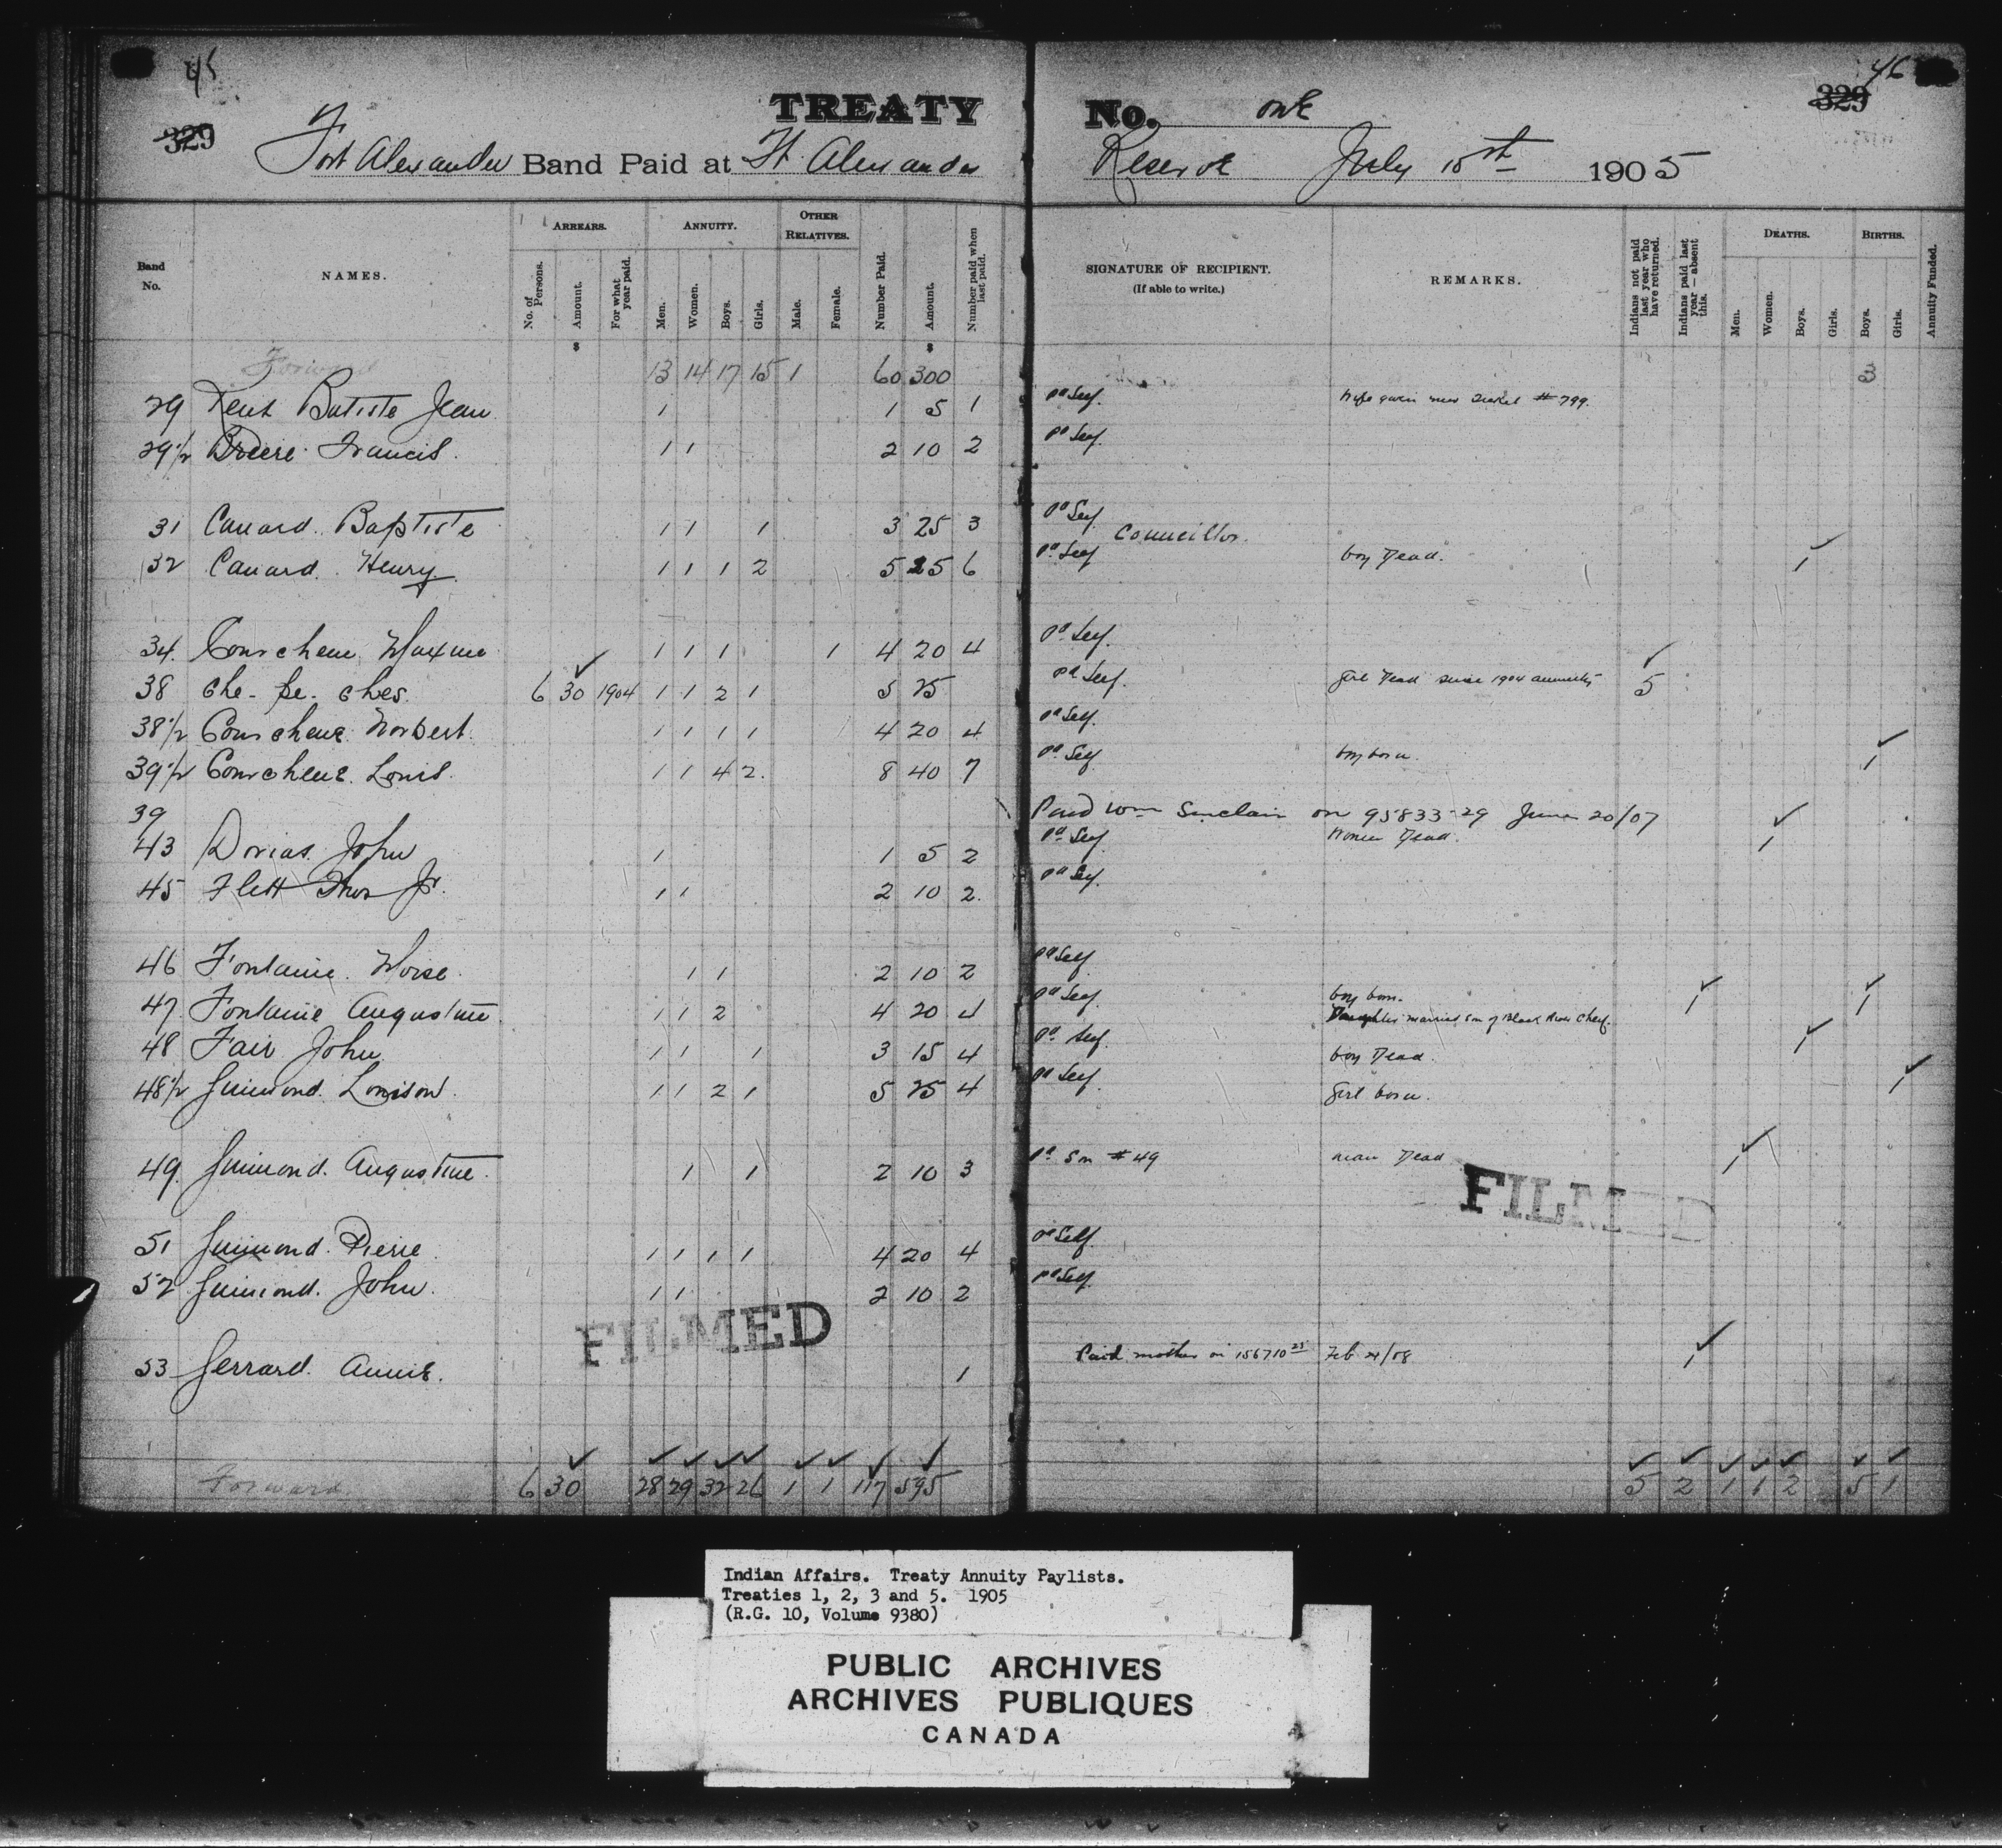 45
46
329
329
TREATY No. one
Fort Alexander Band Paid at Ft. Alexander Reserve July 15st 1905
Band No.
NAMES.
ARREARS.
No. of Persons.
Amount.
For what year paid.
ANNUITY.
Men.
Women.
Boys.
Girls.
OTHER RELATIVES.
Male.
Female.
Number Paid.
Amount.
Number paid when last paid.
SIGNATURE OF RECIPIENT.
(If able to write.)
REMARKS.
Indians not paid last year who have returned.
Indians paid last year — absent this.
DEATHS.
Men.
Women.
Boys.
Girls.
BIRTHS.
Boys.
Girls.
Annuity Funded.
$ $
Forward 13 14 17 15 1 60 300
29 Kent Batiste Jean 1 1 5 1 pd Self. Wife given new ticket # 799.
29 1/2 Briere Francis. 1 1 2 10 2 pd Self.
31 Canard. Baptiste 1 1 1 3 25 3 pd Self. Councillor.
32 Canard. Henry 1 1 1 2 5 25 6 pd Self boy Dead. 1
34. Courchene Maxime 1 1 1 1 4 20 4 pd Self.
38 Che-pe-ches. 6 30 1904 1 1 2 1 5 25 pd Self. girl Dead since 1904 annuity 5
38 1/2 Courchene Norbert. 1 1 1 1 4 20 4 pd Self.
39 1/2 Courchene. Louis. 1 1 4 2. 8 40 7 pd Self. boy born. 1
39 Paid Wm Sinclair on 95833-29 June 20/07
43 Dorias. John 1 1 5 2 pd Self. Women Dead. 1
45 Flett Thos Jr. 1 1 2 10 2. pd Self.
46 Fontaine. Moise. 1 1 2 10 2 pd Self
47 Fontaine Augustine. 1 1 2 4 20 4 pd Self. boy born. 1 1
Daughter married son of Black River Chief.
48 Fair John 1 1 1 3 15 4 pd Self. boy Dead. 1
48 1/2 Guimond. Louison. 1 1 2 1 5 25 4 pd Self. girl born. 1
49. Guimond. Augustine. 1 1 2 10 3 pd Son # 49 man Dead 1
FILMED
51 Guimond. Pierre. 1 1 1 1 4 20 4 pd Self.
52 Guimond. John. 1 1 2 10 2 pd Self.
FILMED
53 Gerrard. Annie. 1 Paid mother on 156710 Feb 21/08 1
Forward 6 30 28 29 32 26 1 1 117 595 5 2 1 1 2 5 1
Indian Affairs. Treaty Annuity Paylists.
Treaties 1, 2, 3 and 5. 1905
(R.G. 10, Volume 9380)
PUBLIC ARCHIVES
ARCHIVES PUBLIQUES
CANADA